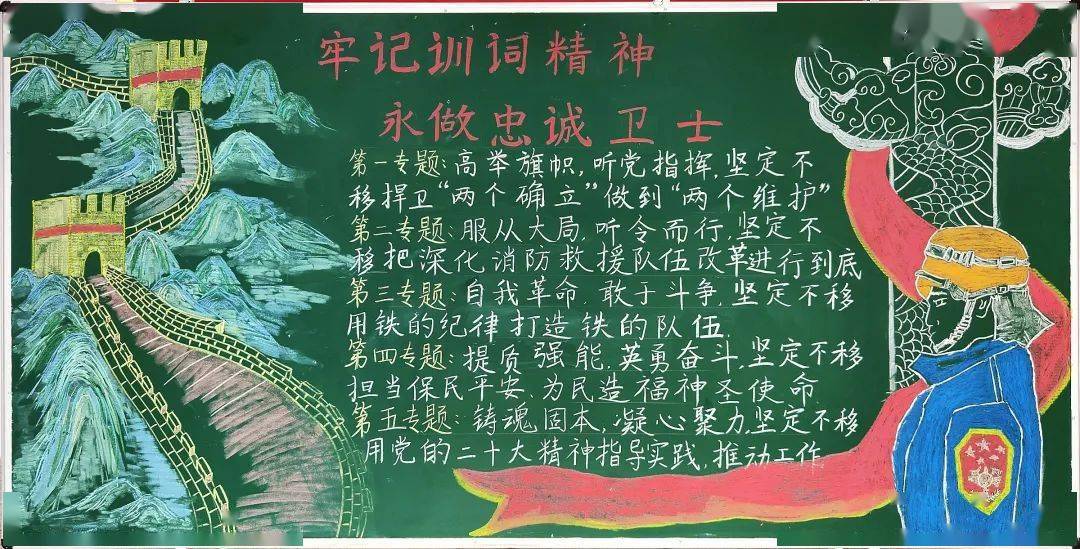 牢记训词精神
永做忠诚卫士
第一专题:高举旗帜,听党指挥,坚定不
移捍卫“两个确立”做到“两个维护”
第二专题:服从大局,听令而行,坚定不
移把深化消防救援队伍改革进行到底
第三专题:自我革命,敢于斗争,坚定不移
用铁的纪律打造铁的队伍
第四专题:提质强能,英勇奋斗,坚定不移
担当保民平安、为民造福神圣使命
第五专题:铸魂固本,凝心聚力,坚定不移
用党的二十大精神指导实践,推动工作